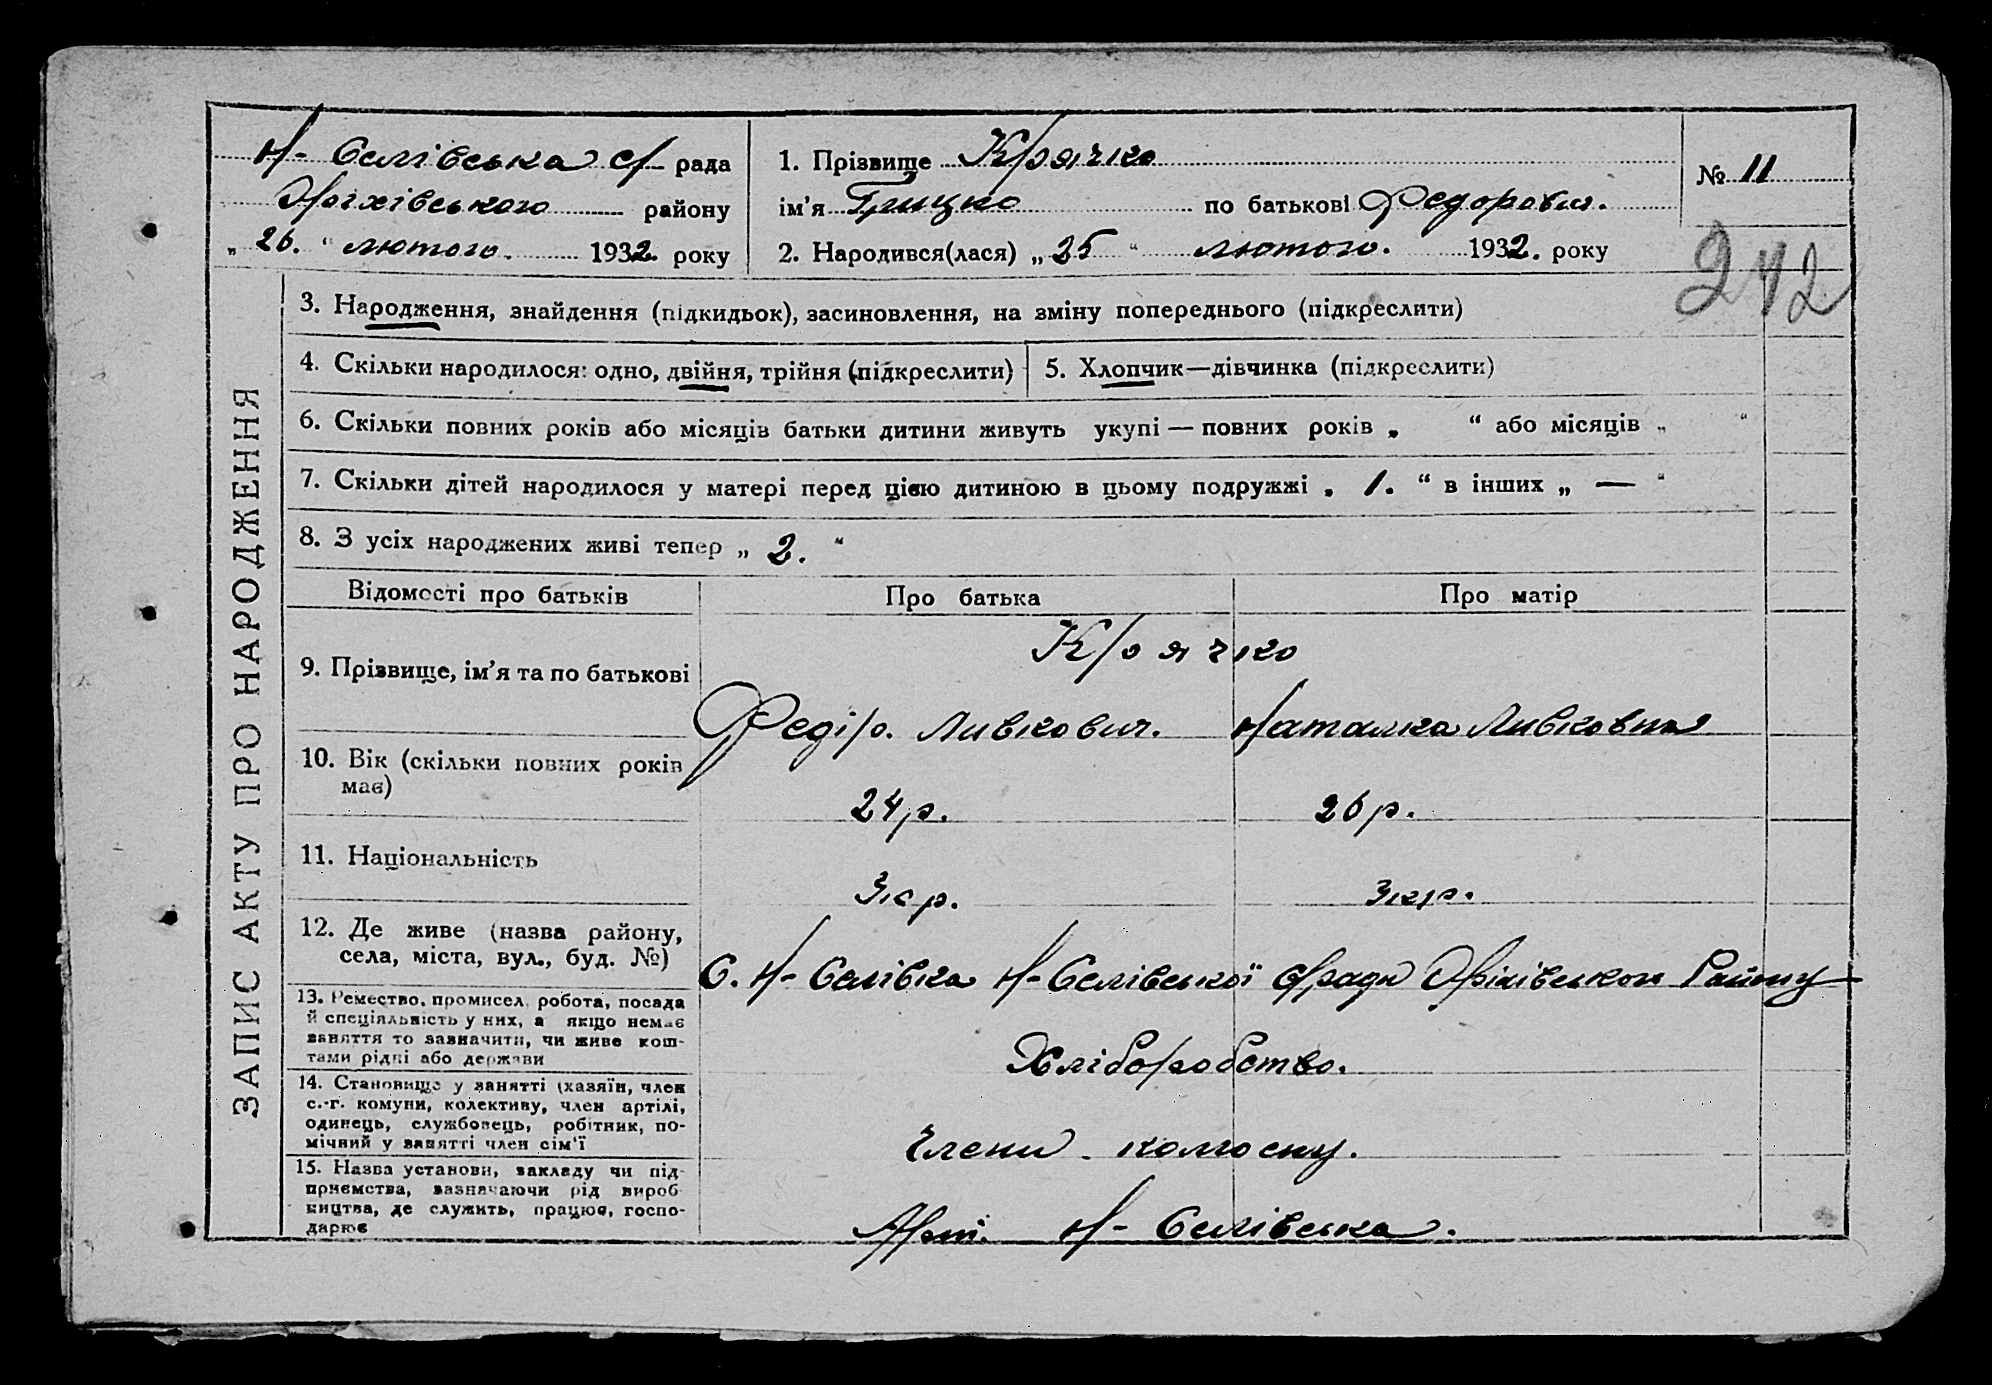 Н-Селівська с/ рада
Оріхівського району
„ 26. “ лютого. 1932. року
1. Прізвище Крячко
ім’я Грицко по батькові Федорович.
2. Народився(лася) „ 25 “ лютого. 1932. року
№ 11
242
ЗАПИС АКТУ ПРО НАРОДЖЕННЯ
3. Народження, знайдення (підкидьок), засиновлення, на зміну попереднього (підкреслити)
4. Скільки народилося: одно, двійня, трійня (підкреслити)
5. Хлопчик—дівчинка (підкреслити)
6. Скільки повних років або місяців батьки дитини живуть укупі — повних років „ “ або місяців „ “
7. Скільки дітей народилося у матері перед цією дитиною в цьому подружжі „ 1. “ в інших „ — “
8. З усіх народжених живі тепер „ 2. “
Відомості про батьків
Про батька
Про матір
9. Прізвище, ім’я та по батькові
Крячко
Федір. Ливкович.
Наталка Ливковна
10. Вік (скільки повних років
має)
24 р.
26 р.
11. Національність
Укр.
Укр.
12. Де живе (назва району,
села, міста, вул., буд. №)
С. Н-Селівка Н-Селівської с/ради Оріхівського Району
13. Ремество, промисел, робота, посада
й спеціяльність у них, а якщо немає
заняття то зазначити, чи живе кош-
тами рідні або держави
Хліборобство.
14. Становище у занятті (хазяїн, член
с.-г. комуни, колективу, член артілі,
одинець, службовець, робітник, по-
мічний у занятті член сім’ї
Члени колгоспу.
15. Назва установи, закладу чи під-
приємства, зазначаючи рід вироб-
ництва, де служить, працює, госпо-
дарює
Арт. Н-Селівська.